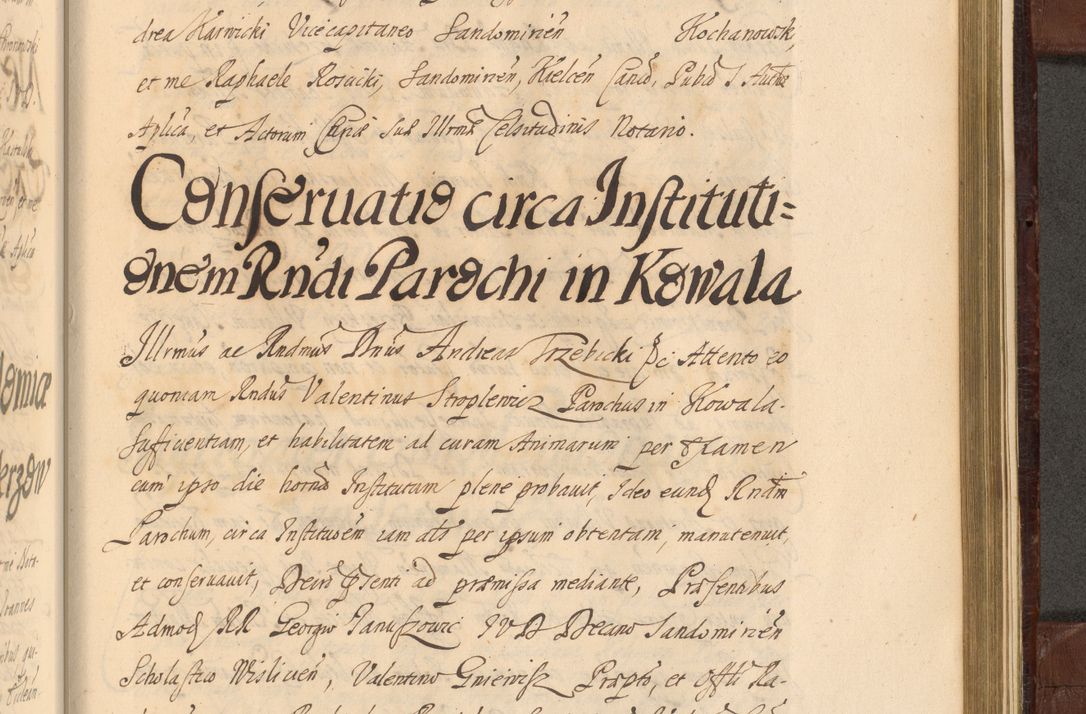 drea Karwicki Vicecapitaneo Sandomirien Kochanowsk,
et me Raphaele Rosucki, Sandomirien, Kielcen Cand, Pubco S. Autte
Aplica, et Actorum Curiæ Suæ Illrmæ Celsitudinis Notario.
Conservatio circa Instituti=
onem Rndi Parochi in Kowala
Illrmus ac Rndmus Dnus Andreas Trzebicki &c Attento eo
quoniam Rndus Valentinus Stoplewicz Parochus in Kowala
sufficientiam, et habilitatem ad curam Animarum per Examen
cum ipso die horno Institutam plene probavit, Ideo eund Rndm
Parochum, circa Instituoem iam als per ipsum obtentam, manutenuit,
et conservavit, Decro præsenti ad præmissa mediante, Præsentibus
Admod RR Georgio Januszowic IVD Decano Sandomirien
Scholastico Wislicien, Valentino Gniewisz Præpto, et Offli Ra-